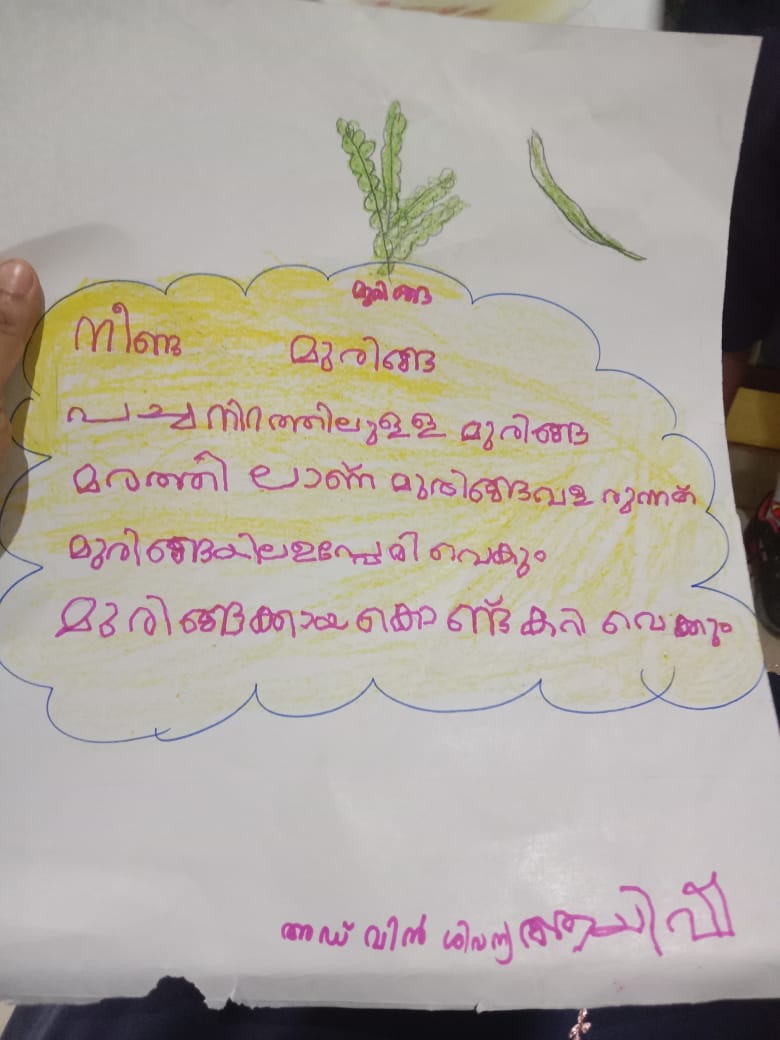 മുരിങ്ങ
നീണ്ട മുരിങ്ങ
പച്ച നിറത്തിലുള്ള മുരിങ്ങ
മരത്തി ലാണ് മുരിങ്ങവള രുന്നത്
മുരിങ്ങയിലഉപ്പേരി വെകും
മുരിങ്ങക്കായകൊ ണ്ട് കറി വെക്കും
അഡ് വിൻ